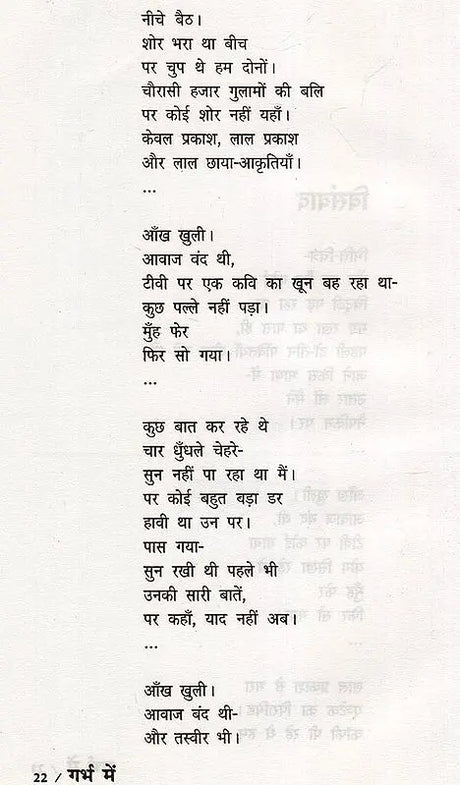 नीचे बैठ।
शोर भरा था बीच
पर चुप थे हम दोनों।
चौरासी हजार गुलामों की बलि
पर कोई शोर नहीं यहाँ।
केवल प्रकाश, लाल प्रकाश
और लाल छाया-आकृतियाँ।
...
आँख खुली।
आवाज बंद थी,
टीवी पर एक कवि का खून बह रहा था-
कुछ पल्ले नहीं पड़ा।
मुँह फेर
फिर सो गया।
...
कुछ बात कर रहे थे
चार धुँधले चेहरे-
सुन नहीं पा रहा था मैं।
पर कोई बहुत बड़ा डर
हावी था उन पर।
पास गया-
सुन रखी थी पहले भी
उनकी सारी बातें,
पर कहाँ, याद नहीं अब।
...
आँख खुली।
आवाज बंद थी-
और तस्वीर भी।
22 / गर्भ में